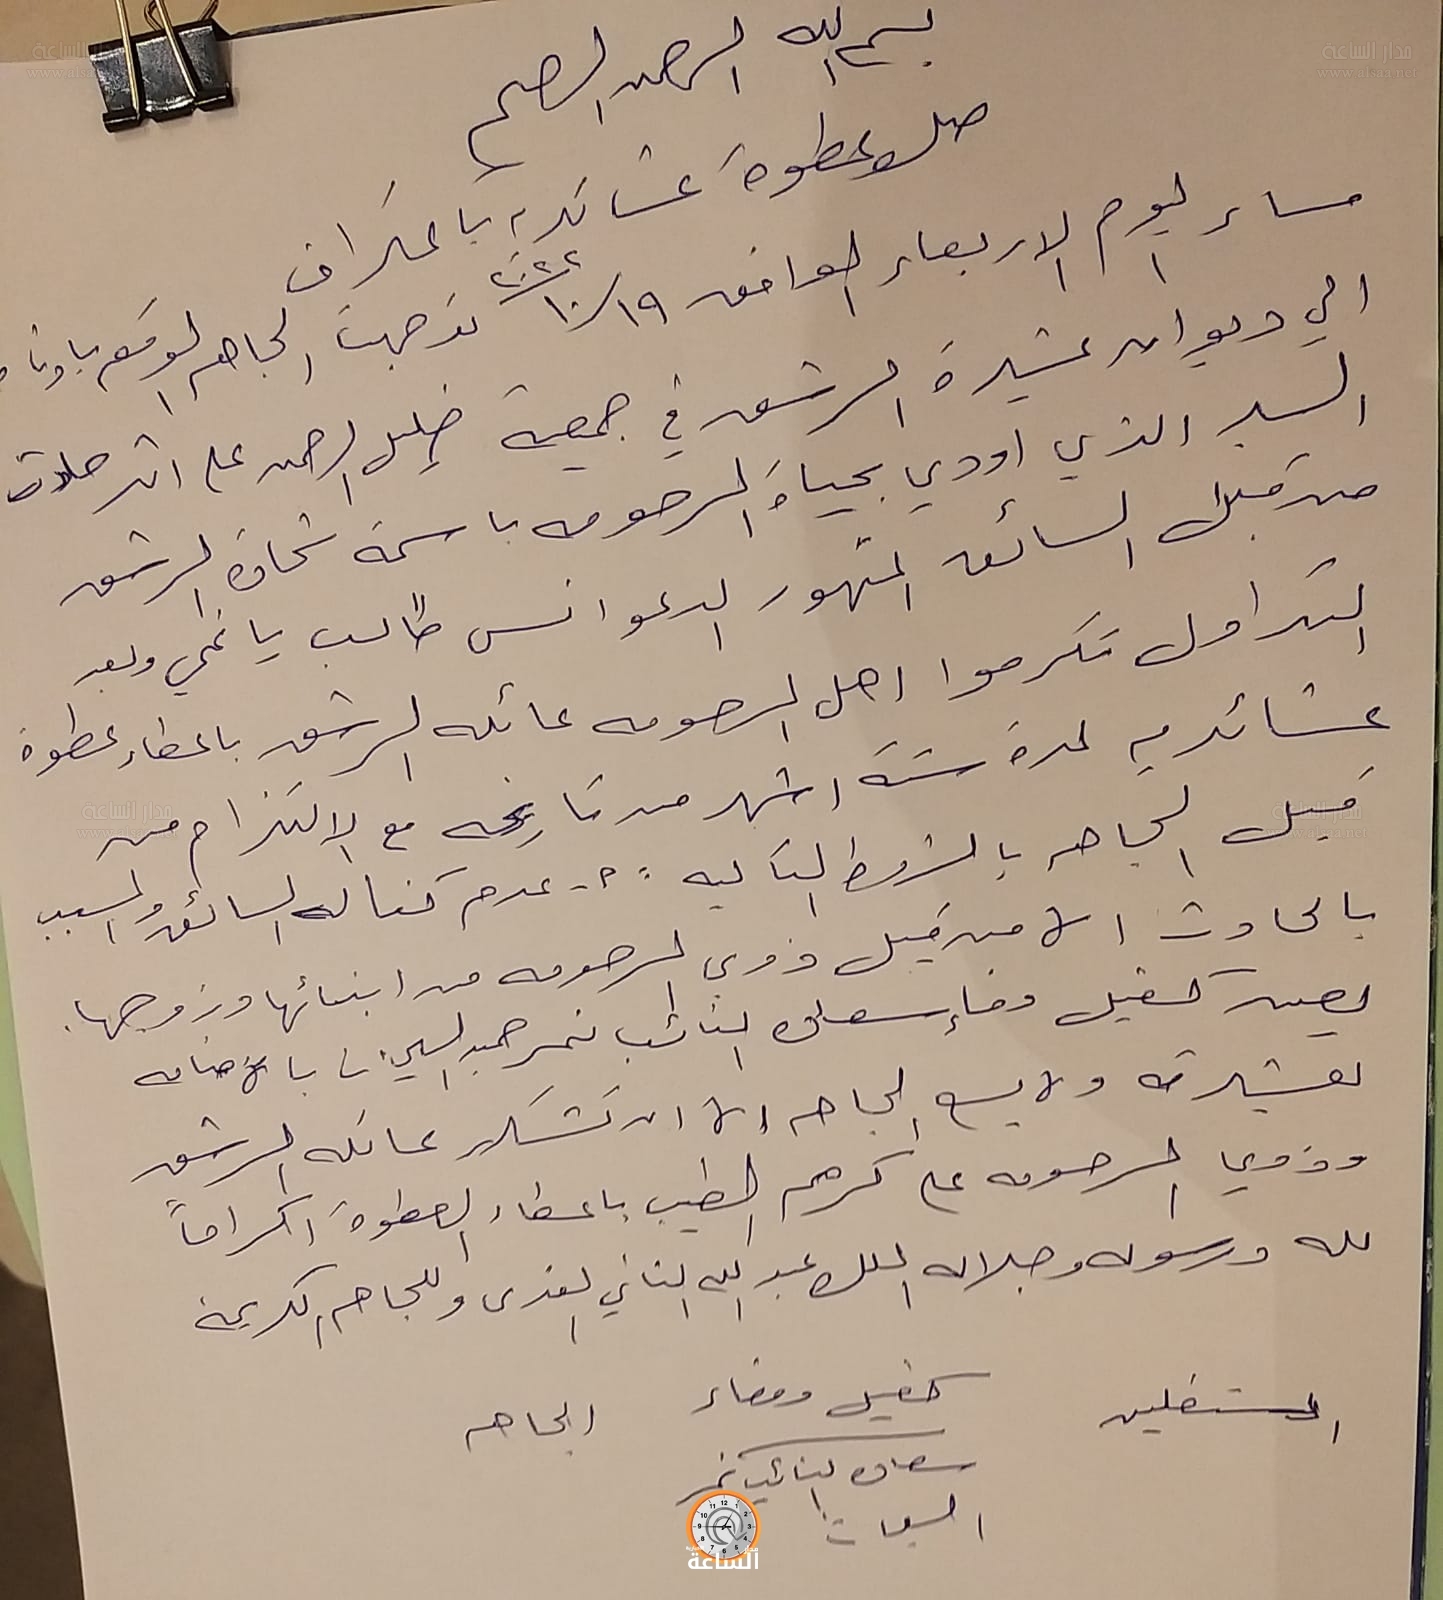 بسم الله الرحمن الرحيم
صك عطوة عشائرية باعتراف
مساء اليوم الاربعاء الموافق ١٠/١٩/٢٠٢٢ توجهت الجاهه الموقعه
الى ديوان عشيرة الرشق في جمعية خليل الرحمن على اثر حادث
السير الذي اودى بحياة المرحومه باسمة شحادة الرشق
من قبل السائق المتهور المدعو انس طالب ياغي وبعد
التداول تكرموا اهل المرحومه عائله الرشق باعطاء عطوة
عشائريه لمدة ستة اشهر من تاريخه مع الالتزام من
قبل الجاهه بالشروط التاليه : ١- عدم كفاله السائق والمسبب
بالحادث الا من قبل ذوي المرحومه من ابنائها وزوجها.
يعين كفيل وفاء سعادة النائب نمر السليحات بالاضافه
لعشيرته ولا يسع الجاهه الا ان تشكر عائله الرشق
وذوي المرحومه على كرمهم الطيب باعطاء العطوة اكراماً
لله ورسوله وجلاله الملك عبد الله الثاني المفدى وللجاهه الكريمة
المستقبلين كفيل وفاء الجاهه
سعادة النائب نمر
السليحات
مدار الساعة
www.alsaa.net
الساعة